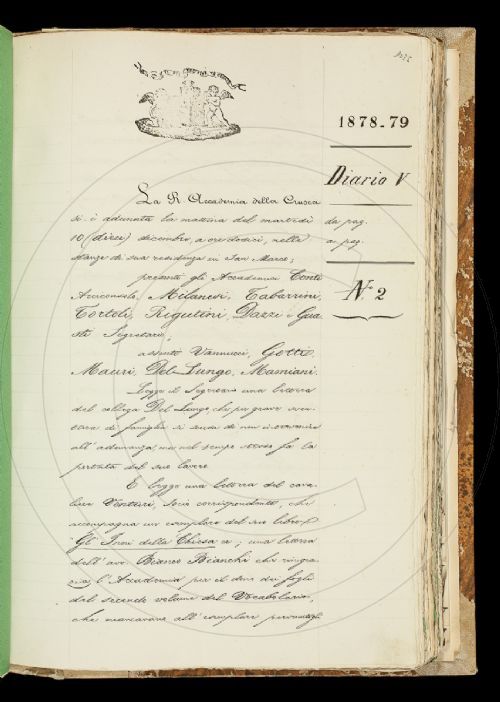 1878-79
Diario V
da pag.
a pag.
N.º 2
La R. Accademia della Crusca
si è adunata la mattina del martedì
10 (dieci) dicembre, a ore dodici, nelle
stanze di sua residenza in San Marco;
presenti gli Accademici Conti
Arciconsolo, Milanesi, Tabarrini,
Tortoli, Rigutini, Dazzi e Gua
sti Segretario;
assenti Vannucci, Gotti,
Mauri, Del Lungo, Mamiani.
Legge il Segretario una lettera
del collega Del Lungo, che per grave
di famiglia si scusa di non
all'adunanza, ma nel tempo stesso fa la
portata del suo lavoro.
E legge una lettera del cava
liere Venturi, socio corrispondente, che
accompagna un esemplare del suo libro
Gl'Inni della Chiesa ec; una lettera
dell'avv. Bianco Bianchi che ringra
zia l'Accademia per il dono dei fogli
del secondo volume del Vocabolario,
che mancavano all'esemplare